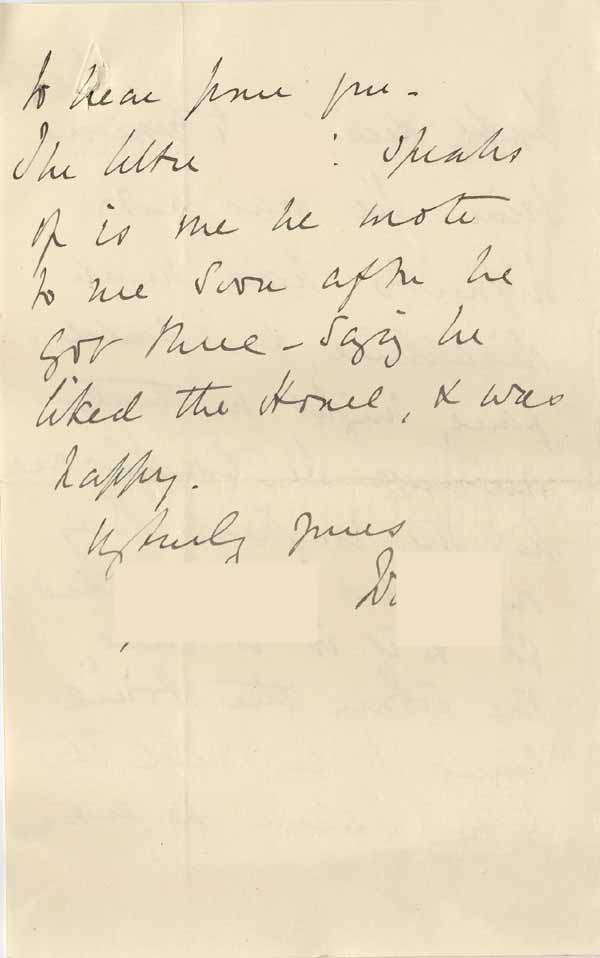 to hear from you -
The letter speaks
of is one he wrote
to me soon after he
got there - saying he
liked the Home, & was
happy.
Vy truly yours